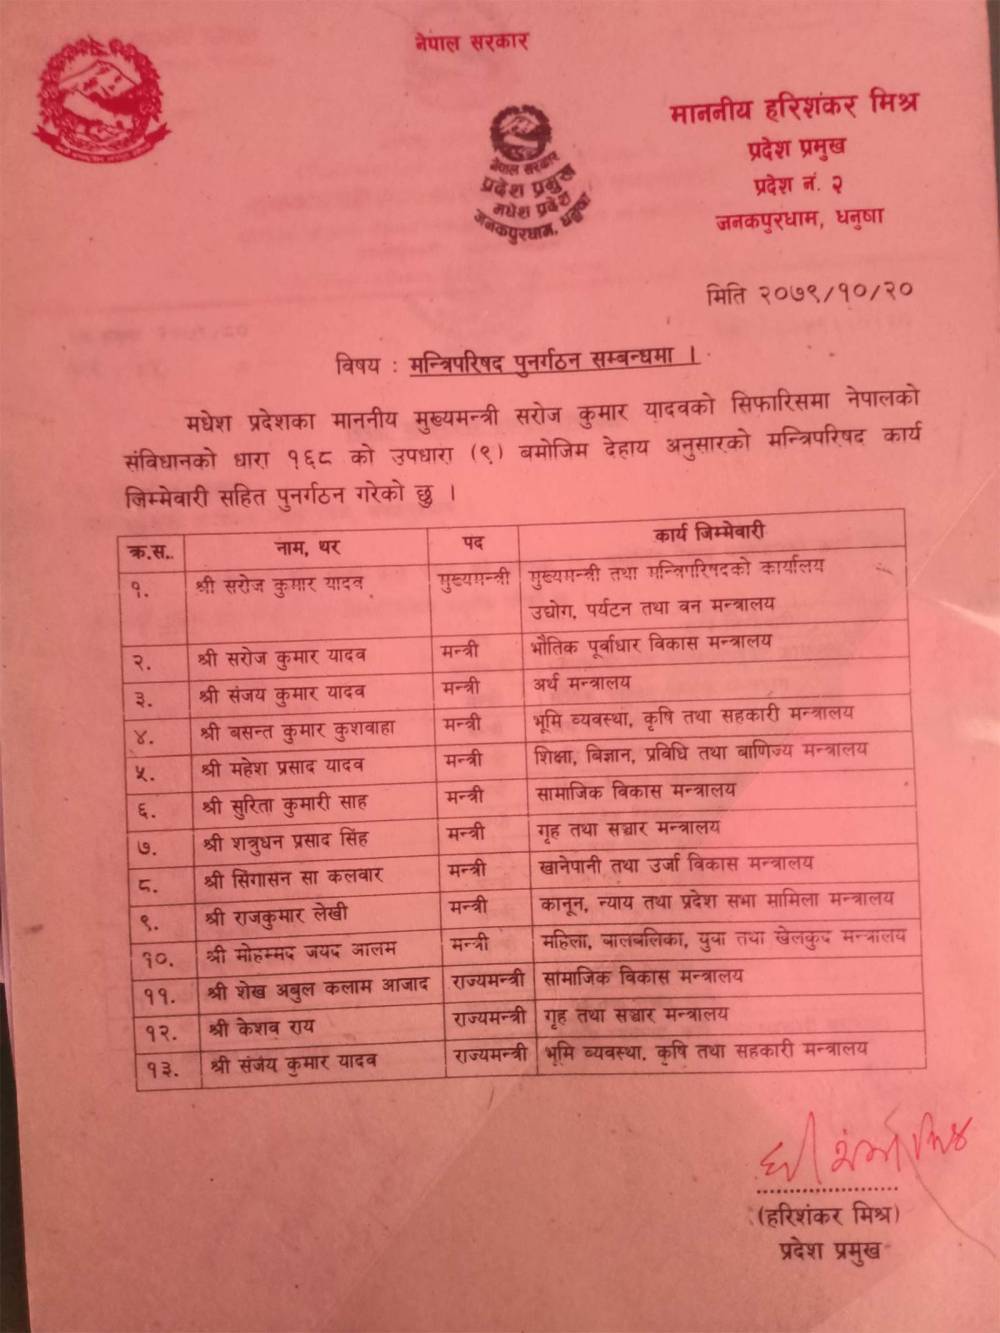 नेपाल सरकार
माननीय हरिशंकर मिश्र
प्रदेश प्रमुख
प्रदेश नं. २
जनकपुरधाम, धनुषा
नेपाल सरकार
प्रदेश प्रमुख
मधेश प्रदेश
जनकपुरधाम, धनुषा
मिति २०७९/१०/२०
विषय : मन्त्रिपरिषद पुनर्गठन सम्बन्धमा ।
मधेश प्रदेशका माननीय मुख्यमन्त्री सरोज कुमार यादवको सिफारिसमा नेपालको
संविधानको धारा १६८ को उपधारा (९) बमोजिम देहाय अनुसारको मन्त्रिपरिषद कार्य
जिम्मेवारी सहित पुनर्गठन गरेको छु ।
क्र.स. नाम, थर पद कार्य जिम्मेवारी
१. श्री सरोज कुमार यादव मुख्यमन्त्री मुख्यमन्त्री तथा मन्त्रिपरिषदको कार्यालय
उद्योग, पर्यटन तथा वन मन्त्रालय
२. श्री सरोज कुमार यादव मन्त्री भौतिक पूर्वाधार विकास मन्त्रालय
३. श्री संजय कुमार यादव मन्त्री अर्थ मन्त्रालय
४. श्री बसन्त कुमार कुशवाहा मन्त्री भूमि व्यवस्था, कृषि तथा सहकारी मन्त्रालय
५. श्री महेश प्रसाद यादव मन्त्री शिक्षा, बिज्ञान, प्रविधि तथा बाणिज्य मन्त्रालय
६. श्री सुरिता कुमारी साह मन्त्री सामाजिक विकास मन्त्रालय
७. श्री शत्रुधन प्रसाद सिंह मन्त्री गृह तथा सञ्चार मन्त्रालय
८. श्री सिंगासन सा कलवार मन्त्री खानेपानी तथा उर्जा विकास मन्त्रालय
९. श्री राजकुमार लेखी मन्त्री कानून, न्याय तथा प्रदेश सभा मामिला मन्त्रालय
१०. श्री मोहम्मद जयद आलम मन्त्री महिला, बालबलिका, युवा तथा खेलकुद मन्त्रालय
११. श्री शेख अबुल कलाम आजाद राज्यमन्त्री सामाजिक विकास मन्त्रालय
१२. श्री केशव राय राज्यमन्त्री गृह तथा सञ्चार मन्त्रालय
१३. श्री संजय कुमार यादव राज्यमन्त्री भूमि व्यवस्था, कृषि तथा सहकारी मन्त्रालय
(हरिशंकर मिश्र)
प्रदेश प्रमुख